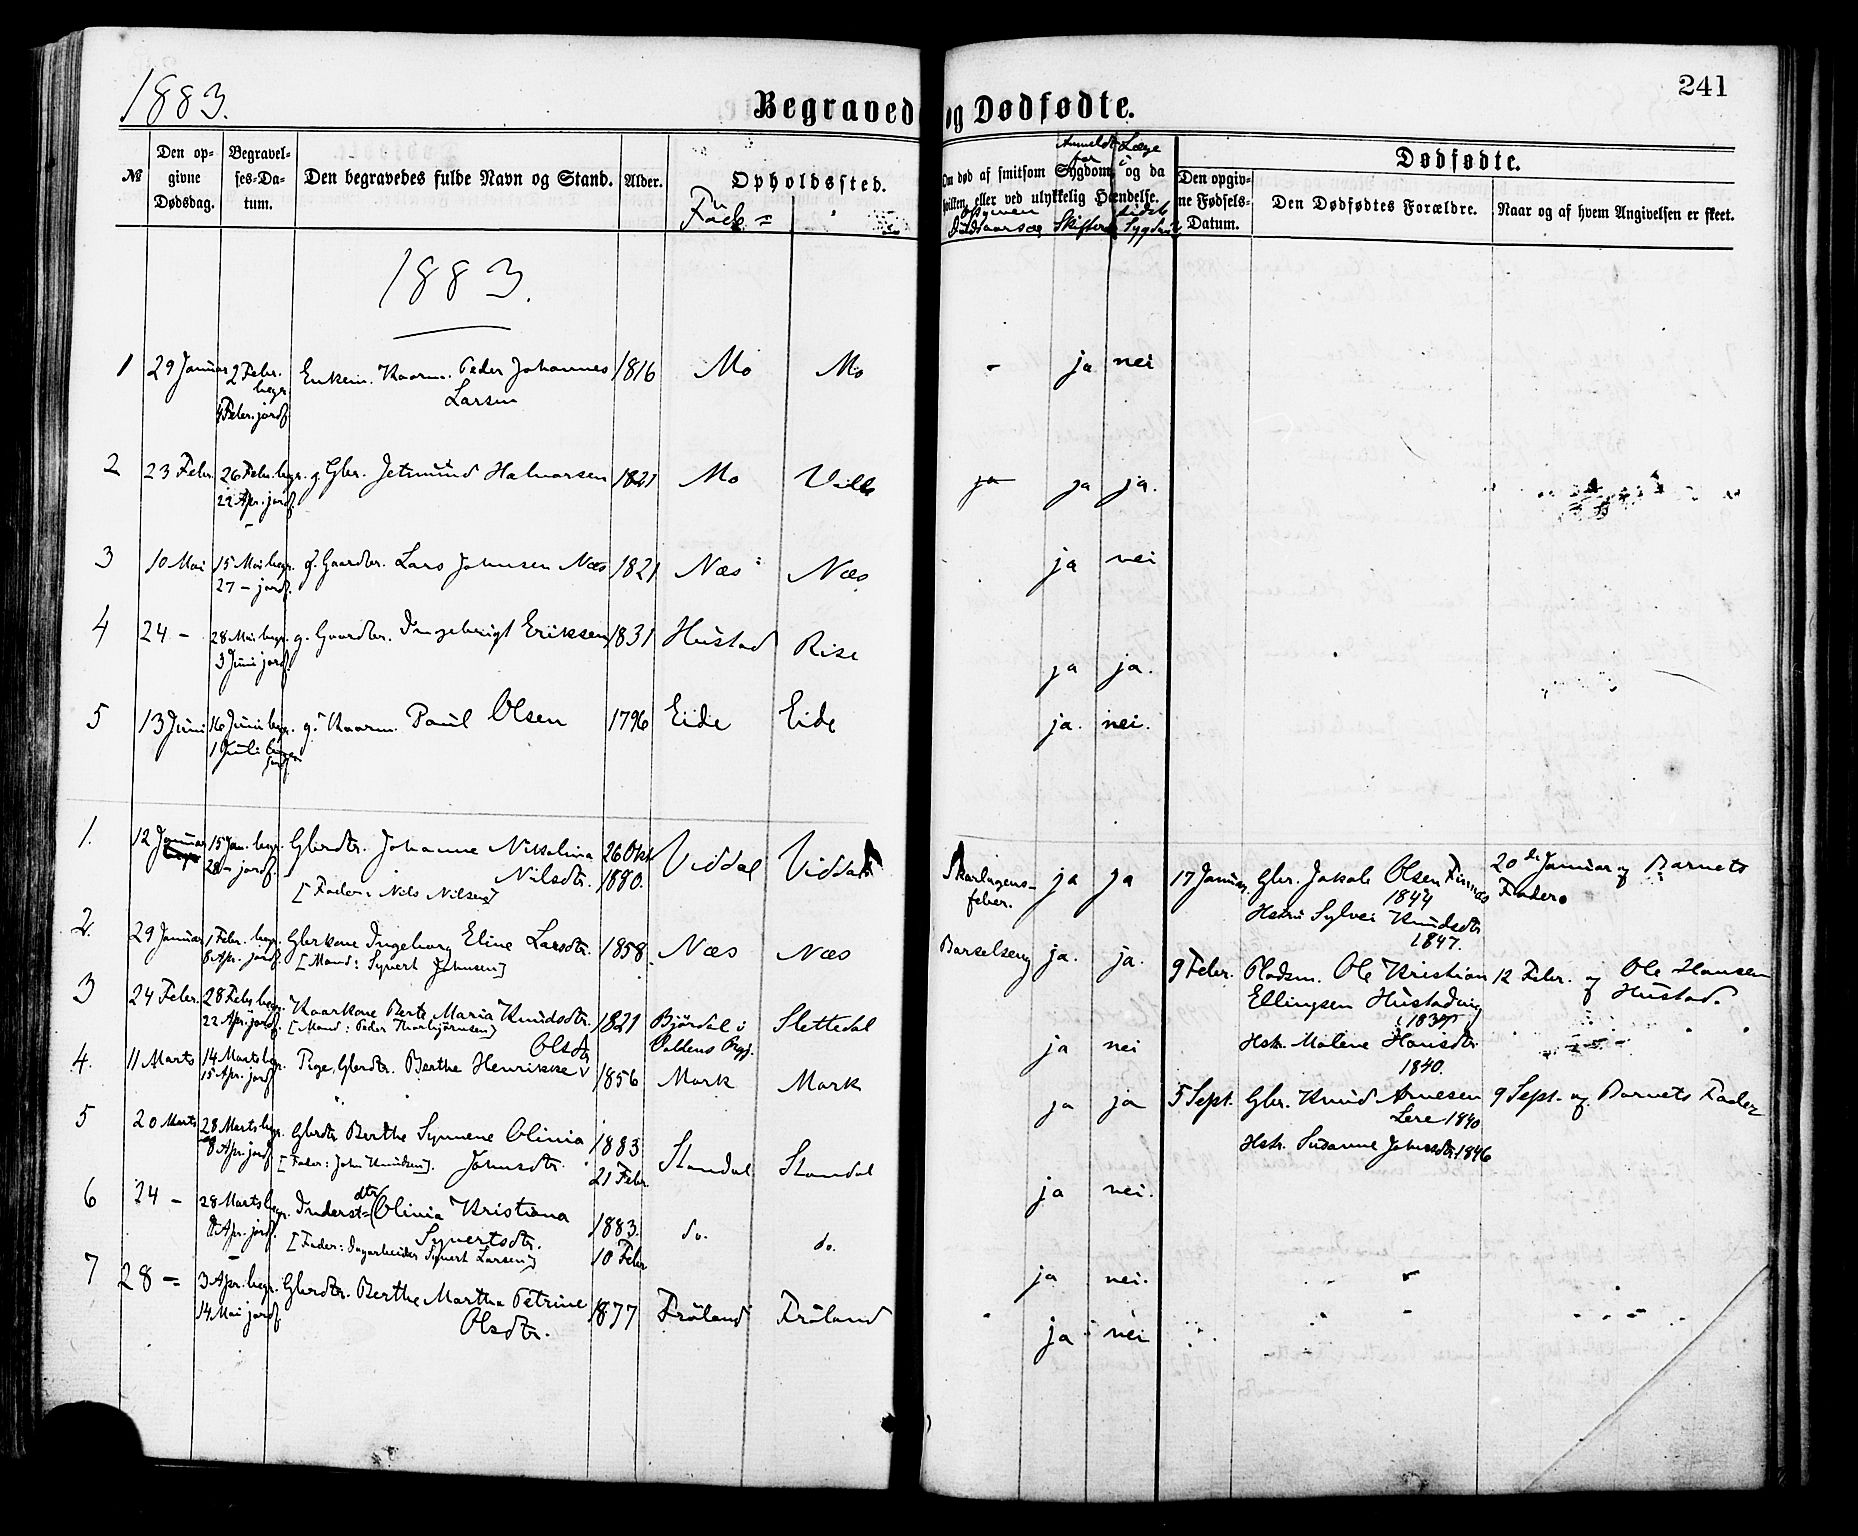 1883.
Begravede og Dødfødte.
241
№
Den op-
givne
Dødsdag.
Begravel-
ses-Da-
tum.
Den begravedes fulde Navn og Stand.
Alder.
Opholdssted.
Om død af smitsom Sygdom, og da
hvilken, eller ved ulykkelig Hændelse.
Anmeldt for Skifteret
Læge i sidste Sygdom
Dødfødte.
Den opgiv-
ne Fødsels-
Datum.
Den Dødfødtes Forældre.
Naar og af hvem Angivelsen er skeet.
1883.
1 29 Januar 2 Febr. begr. Enkem. Kaarm. Peder Johannes 1816 Mo Mo - ja nei
4 Febr. jordf. Larsen
2 23 Febr. 26 Febr. begr. g. Gbr. Jetmund Halvorsen 1821 Mo ja ja ja.
22 Apr. jordf.
3 10 Mai 15 Mai begr. g. Gaardbr. Lars Johnsen Næs 1821 Næs Næs ja nei
27 - jordf.
4 24 - 28 Mai begr. g. Gaardbr. Ingebrigt Eriksen 1831 Hustad Rise ja ja.
3 Juni jordf.
5 13 Juni 16 Juni begr. g. Kaarm. Paul Olsen 1796 Eide Eide ja. nei.
1 Juli jordf.
1. 12 Januar 15 Jan. begr. Gbrdtr. Johanne Nikolina 26 Okt. Viddal Viddal Skarlagens- ja ja
28 - jordf. Nilsdtr. 1880. feber.
[Fader: Nils Nilsen]
17 Januar. Gbr. Jakob Olsen Finnes 20de Januar af Barnets
1844 Fader.
Hstr. Sylvei Knudsdtr.
1847.
2. 29 Januar 1 Febr. begr. Gbrkone Ingeborg Eline Larsdtr. 1858. Næs Næs Barselseng ja. ja.
8 Apr. jordf. [Mand: Syvert Johnsen]
9 Febr. Pladsm. Ole Kristian 12 Febr. af Ole Hansen
Ellingsen Hustadvig Hustad.
Hstr. Malene Hansdtr.
1840.
3 24 Febr. 28 Febr. begr. Kaarkone Berte Maria Knudsdtr. 1821 Bjørdal i Slettedal ja nei
22 Apr. jordf. [Mand: Peder Thorbjørnsen] Voldens Pgj.
4. 11 Marts 14 Marts begr. Pige, Gbrdtr. Berthe Henrikke Olsdtr. 1856 Mork Mork ja ja
15 Apr. jordf.
5 Sept. Gbr. Knud Arnesen 9 Sept. af Barnets Fader
1840
Hstr. Susanne Johnsdtr. 1846
5 20 Marts 28 Marts begr. Gbrdtr. Berthe Synnene Olinia 1883 Standal Standal ja nei.
8 Apr. jordf. [Fader: John Knudsen]. Johnsdtr. 21 Febr.
6 24 - 28 Marts begr. Inderst-dtr. Olinia Kristiana 1883. do. do. ja nei.
8 Apr. jordf. Syvertsdtr. 10 Febr.
[Fader: Dagarbeider Syvert Larsen]
7 28 - 3 Apr. begr. Gbrdtr. Berthe Martha Petrine 1877 Frøland Frøland ja nei
14 Mai jordf. Olsdtr.